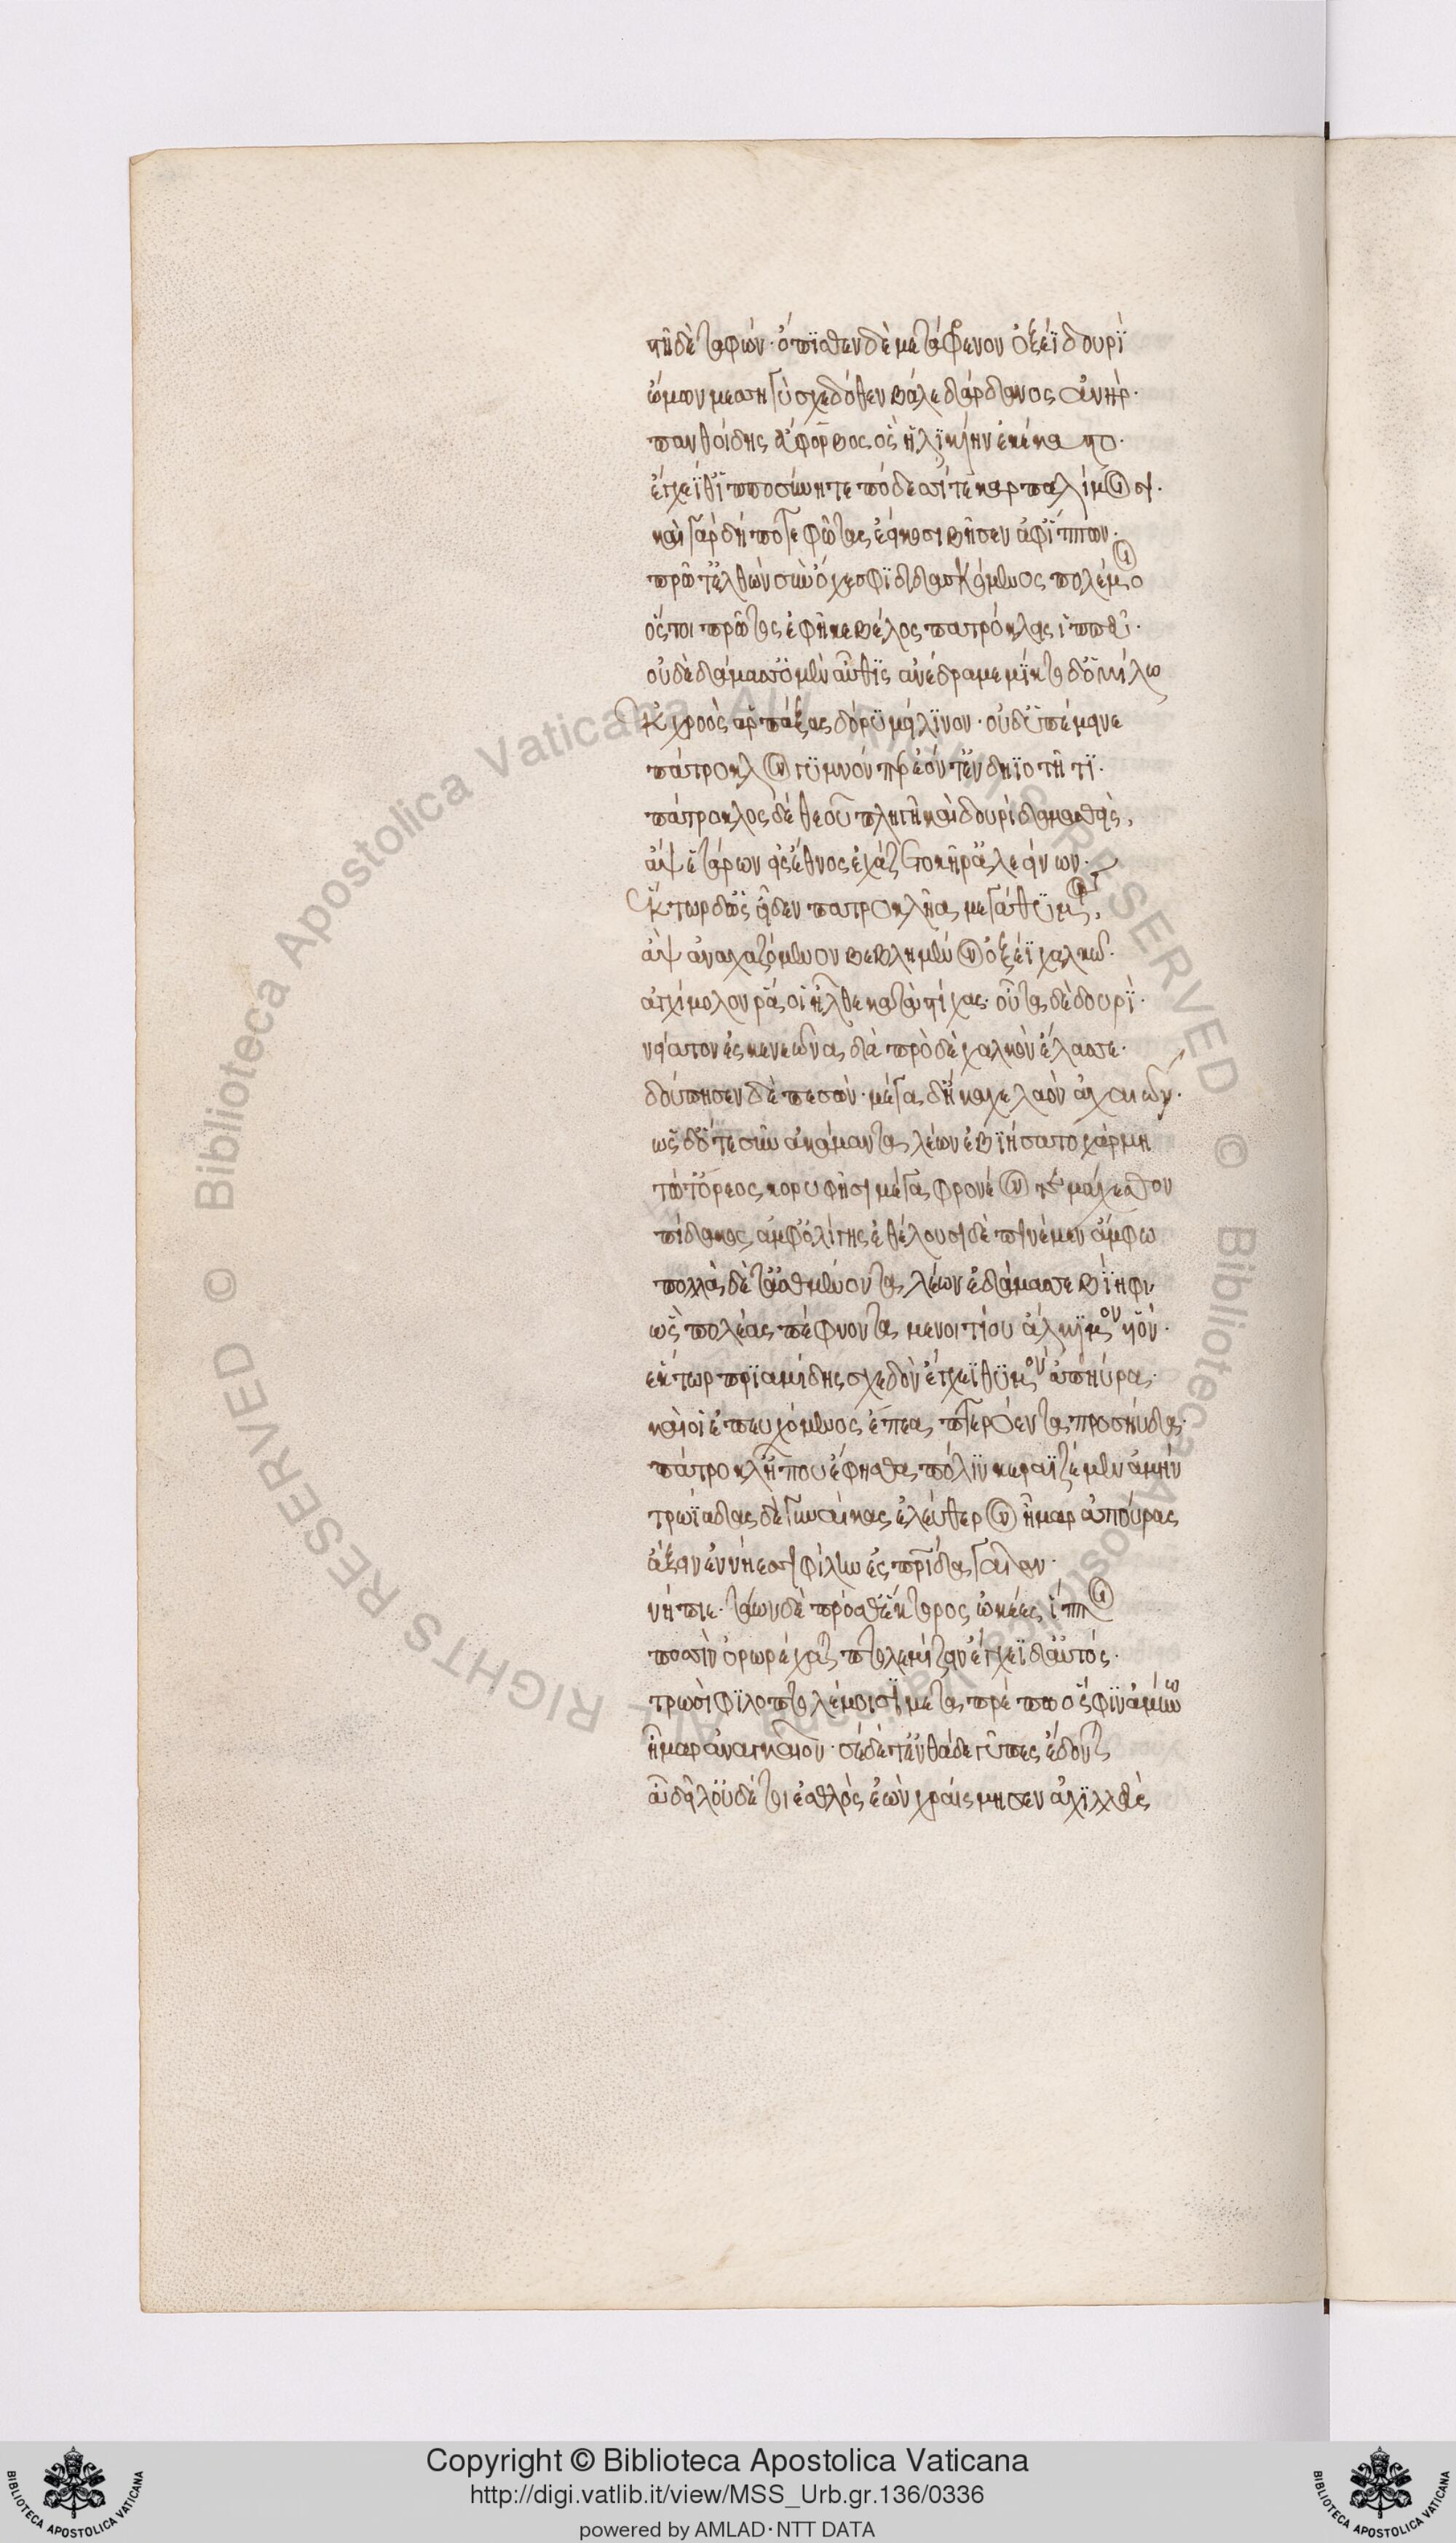 στῆ δὲ ταφών· ὄπϊσθεν δὲ μετάφρενον ὀξέϊ δουρὶ
ὤμων μεσσηγὺ σχεδόθεν βάλε δάρδανος ἀνήρ·
πανθοίδης εὔφορβος ὃς ἡλϊκίην ἐκέκαστο·
ἔγχεΐ θ' ἱπποσύνη τε πόδεσσί τε καρπαλίμοισι·
καὶ γὰρ δήποτε φῶτας ἐείκοσι βῆσεν ἀφ' ἵππων·
πρῶτ' ἐλθὼν σὺν ὄχεσφι διδασκόμενος πολέμοιο
ὅς τοι πρῶτος ἐφῆκε βέλος πατρόκλεις ἱππεῦ·
οὐδὲ δάμασσ' ὁ μὲν αὖθϊς ἀνέδραμε μίκτο δ' ὁμίλω
ἐκ χροὸς ἁρπάξας δόρυ μείλινον· οὐδ' ὑπέμεινε
πάτροκλον γυμνόν περ ἐόντ' ἐν δηϊοτῆτϊ·
πάτροκλος δὲ θεοῦ πληγῆ καὶ δουρὶ δαμασθεὶς,
ἂψ ἑτάρων εἰς ἔθνος ἐχάζετο κῆρ' ἀλεείνων·
ἕκτωρ δ' ὡς εἶδεν πατροκλῆα μεγάθυμον,
ἂψ ἀναχαζόμενον βεβλημένον ὀξέϊ χαλκῶ·
ἀγχίμολον ῥά οἱ ἦλθε κατὰ στίχας· οὖτα δὲ δουρὶ·
νείατον ἐς κενεῶνα, διὰ πρὸ δὲ χαλκὸν ἔλασσε·
δούπησεν δὲ πεσὼν· μέγα δ' ἤκαχε λαὸν ἀχαιῶν·
ὡς δ' ὅτε σῦν ἀκάμαντα λέων ἐβϊήσατο χάρμη
τώ τ' ὄρεος κορυφῆσι μέγα φρονέοντε μάχεσθον
πίδακος ἀμφ' ὀλίγης ἐθέλουσι δὲ πινέμεν ἄμφω
πολλὰ δέ τ' ἀσθμαίνοντα λέων ἐδάμασσε βίηφι,
ὡς πολέας πέφνοντα μενοιτίου ἄλκιμον υἱόν·
ἕκτωρ πρϊαμίδης σχεδὸν ἔγχεϊ θυμὸν ἀπηύρα·
καὶ οἱ ἐπευχόμενος ἔπεα πτερόεντα προσηύδα·
πάτροκλ' ἦ που ἔφησθα πόλϊν κεραϊζέμεν ἀμήν
τρωϊάδας δὲ γυναῖκας ἐλεύθερον ἦμαρ ἀπούρας
ἄξειν ἐν νήεσσι φίλην ἐς πατρίδα γαῖαν·
νήπιε· τάων δὲ πρόσθ' ἕκτορος ὠκέες ἵπποι
ποσσὶν ὀρωρέχαται πτολεμίζειν ἔγχεϊ δ' αὐτός·
τρωσὶ φϊλοπτολέμοισϊ μεταπρέπω ὅς σφϊν ἀμύνω
ἦμαρ ἀναγκαῖον· σὲ δέ τ' ἐνθάδε γῦπες ἔδονται
ἆ δείλ' οὐδέ τοι ἐσθλὸς ἐὼν χραίσμησεν ἀχϊλλεὺς
Copyright © Biblioteca Apostolica Vaticana
http://digi.vatlib.it/view/MSS_Urb.gr.136/0336
powered by AMLAD·NTT DATA
BIBLIOTECA APOSTOLICA VATICANA
BIBLIOTECA APOSTOLICA VATICANA
© Biblioteca Apostolica Vaticana ALL RIGHTS RESERVED
© Biblioteca Apostolica Vaticana ALL RIGHTS RESERVED